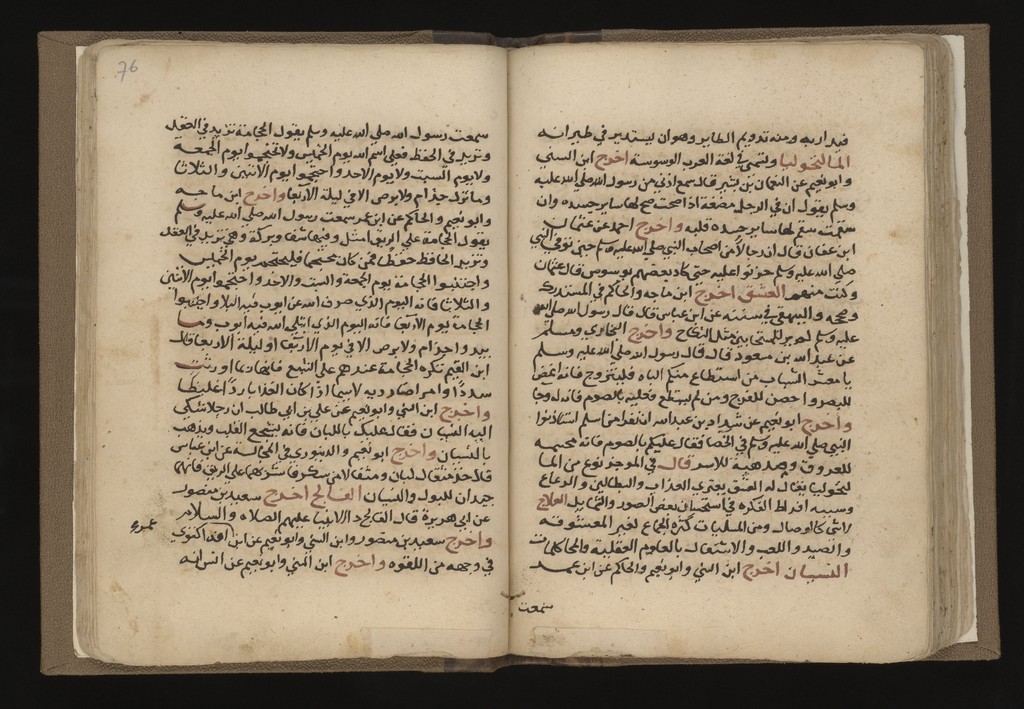 فيدار به ومنه تدويم الطاير وهو ان يستدير في طيرانه
الماليخوليا وتسمى في لغة العرب الوسوسة اخرج ابن السني
وابو نعيم عن النعمان بن بشير قال سمع اذني من رسول الله صلى الله عليه
وسلم يقول ان في الرجل مضغة اذا صحت صح لها ساير جسده وان
سقمت سقم لها ساير جسده قلبه واخرج احمد عن عثمان
ابن عفان قال ان رجالا من اصحاب النبي صلى الله عليه وسلم حين توفي النبي
صلى الله عليه وسلم حزنوا عليه حتى كاد بعضهم يوسوس قال عثمان
وكنت منهم العشق اخرج ابن ماجه والحاكم في المستدرك
وصححه والبيهقي في سننه عن ابن عباس قال قال رسول الله صلى الله
عليه وسلم لم ير للمتحابين مثل النكاح واخرج البخاري ومسلم
عن عبد الله بن مسعود قال قال رسول الله صلى الله عليه وسلم
يا معشر الشباب من استطاع منكم الباه فليتزوج فانه اغض
للبصر واحصن للفرج ومن لم يستطع فعليه بالصوم فانه له وجا
واخرج ابو نعيم عن شداد بن عبد الله ان نفرا من اسلم استاذنوا
النبي صلى الله عليه وسلم في الخصا فقال عليكم بالصوم فانه محسمه
للعروق ومذهبة للاسر قال في الموجز نوع من الما
ليخوليا يقال له العشق يعتري العزاب والبطالين والرعاع
وسببه افراط الفكرة في استحسان بعض الصور والشمايل العلاج
لا شي كالوصال ومن المسليات كثرة الجماع لغير المعشوقه
والصيد واللعب والاشتغال بالعلوم العقلية والمحاكمات
النسيان اخرج ابن السني وابو نعيم والحاكم عن ابن عمر
سمعت
76
سمعت رسول الله صلى الله عليه وسلم يقول الحجامة تزيد في العقل
وتزيد في الحفظ فعلى اسم الله يوم الخميس ولا تحتجموا يوم الجمعة
ولا يوم السبت ولا يوم الاحد واحتجموا يوم الاثنين والثلاثا
وما نزل جذام ولا برص الا في ليلة الاربعا واخرج ابن ماجه
وابو نعيم والحاكم عن ابن عمر سمعت رسول الله صلى الله عليه وسلم
يقول الحجامة على الريق امثل وفيها شفا وبركة وهي تزيد في العقل
وتزيد الحافظ حفظا فمن كان محتجما فليحتجم يوم الخميس
واجتنبوا الحجامة يوم الجمعة والسبت والاحد واحتجموا يوم الاثنين
والثلاثا فانه اليوم الذي صرف الله عن ايوب فيه البلا واجتنبوا
الحجامة يوم الاربعا فانه اليوم الذي ابتلى الله فيه ايوب وما
يبدوا جذام ولا برص الا في يوم الاربعا او ليلة الاربعا قال
ابن القيم تكره الحجامة عندهم على الشبع فانها ربما اورثت
سددا وامراضا ردية لا سيما اذا كان الغذا باردا غليظا
واخرج ابن السني وابو نعيم عن علي بن ابي طالب ان رجلا شكى
اليه النسيان فقال عليك باللبان فانه يشجع القلب ويذهب
بالنسيان واخرج ابو نعيم والدينوري في المجالسة عن ابن عباس
قال خذ مثقال لبان ومثقالا من سكر فاشربهما على الريق فانهما
جيدان للبول والنسيان الفالج اخرج سعيد بن منصور
عن ابي هريرة قال الفالج داء الانبيا عليهم الصلاه والسلام
واخرج سعيد بن منصور وابن السني وابو نعيم عن ابن انه اكتوى
في وجهه من اللقوه واخرج ابن السني وابو نعيم عن انس انه
عمر